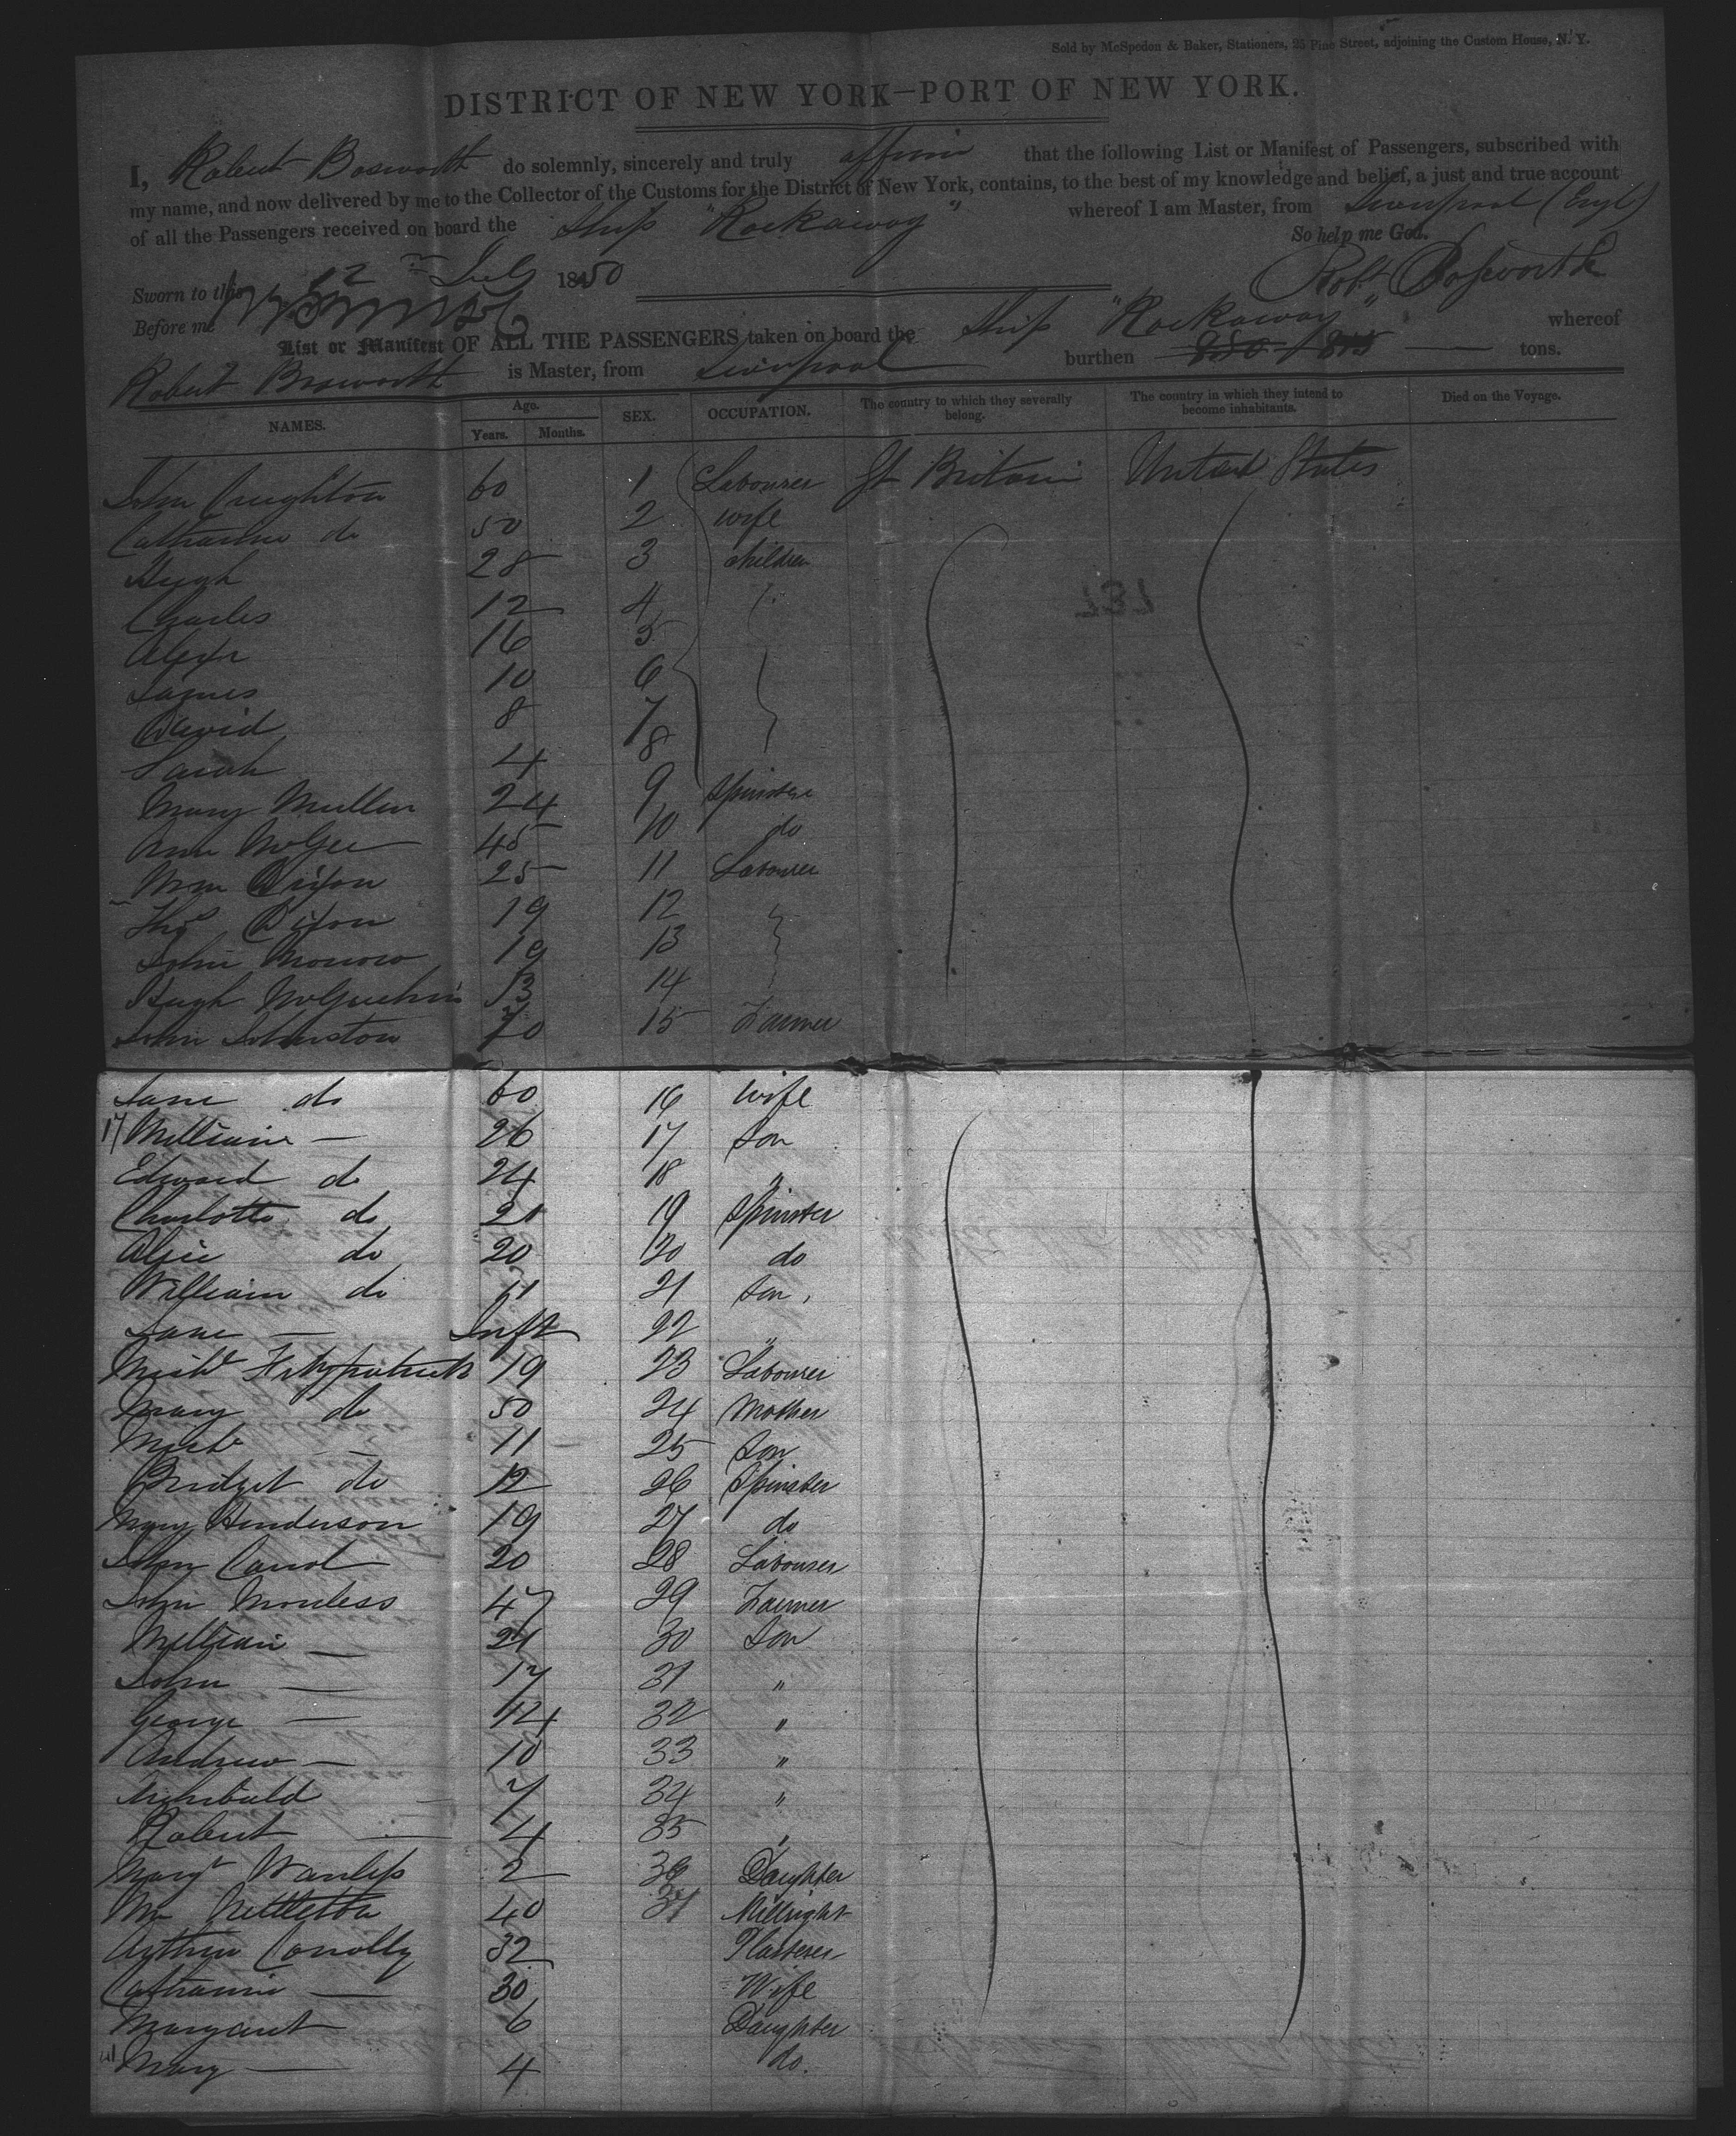 Sold by McSpedon & Baker, Stationers, 25 Pine Street, adjoining the Custom House, N. Y.
DISTRICT OF NEW YORK—PORT OF NEW YORK.
I, Robert Bosworth do solemnly, sincerely and truly affirm that the following List or Manifest of Passengers, subscribed with
my name, and now delivered by me to the Collector of the Customs for the District of New York, contains, to the best of my knowledge and belief, a just and true account
of all the Passengers received on board the Ship "Rockaway" whereof I am Master, from Liverpool (Engl)
So help me God.
Sworn to this 12 July 1850 Robt Bosworth
Before me
List or Manifest OF ALL THE PASSENGERS taken on board the Ship "Rockaway" whereof
Robert Bosworth is Master, from Liverpool burthen tons.
NAMES. Age. Years. Months. SEX. OCCUPATION. The country to which they severally belong. The country in which they intend to become inhabitants. Died on the Voyage.
John Creighton 60 1 Labourer Gt Britain United States
Catharine do 50 2 wife
Hugh 28 3 children
Charles 12 4
Alexr 16 5
James 10 6
David 8 7
Sarah 4 8
Mary Mullen 24 9 Spinster
Ann McGee 45 10 do
Wm Dixon 25 11 Labourer
Thos Dixon 19 12
John Morrow 19 13
Hugh 13 14
John Johnston 70 15 Farmer
Jane do 60 16 wife
17 William — 26 17 Son
Edward do 24 18 "
Charlotte do 21 19 Spinster
Alice do 20 20 do
William do 11 21 Son
Jane — Inft 22 "
Michl Fitzpatrick 19 23 Labourer
Mary do 50 24 Mother
Michl — 11 25 Son
Bridget do 12 26 Spinster
Mary Henderson 19 27 do
John Carrol 20 28 Labourer
John 47 29 Farmer
William — 21 30 Son
John — 17 31 "
George — 14 32 "
Andrew — 10 33 "
Archibald 7 34 "
Robert — 4 35 "
Margt Wanless 2 36 Daughter
Wm Nettleton 40 37 Millright
Arthur Conolly 32 Plasterer
Catharine — 30 Wife
Margaret 6 Daughter
41 Mary — 4 do.